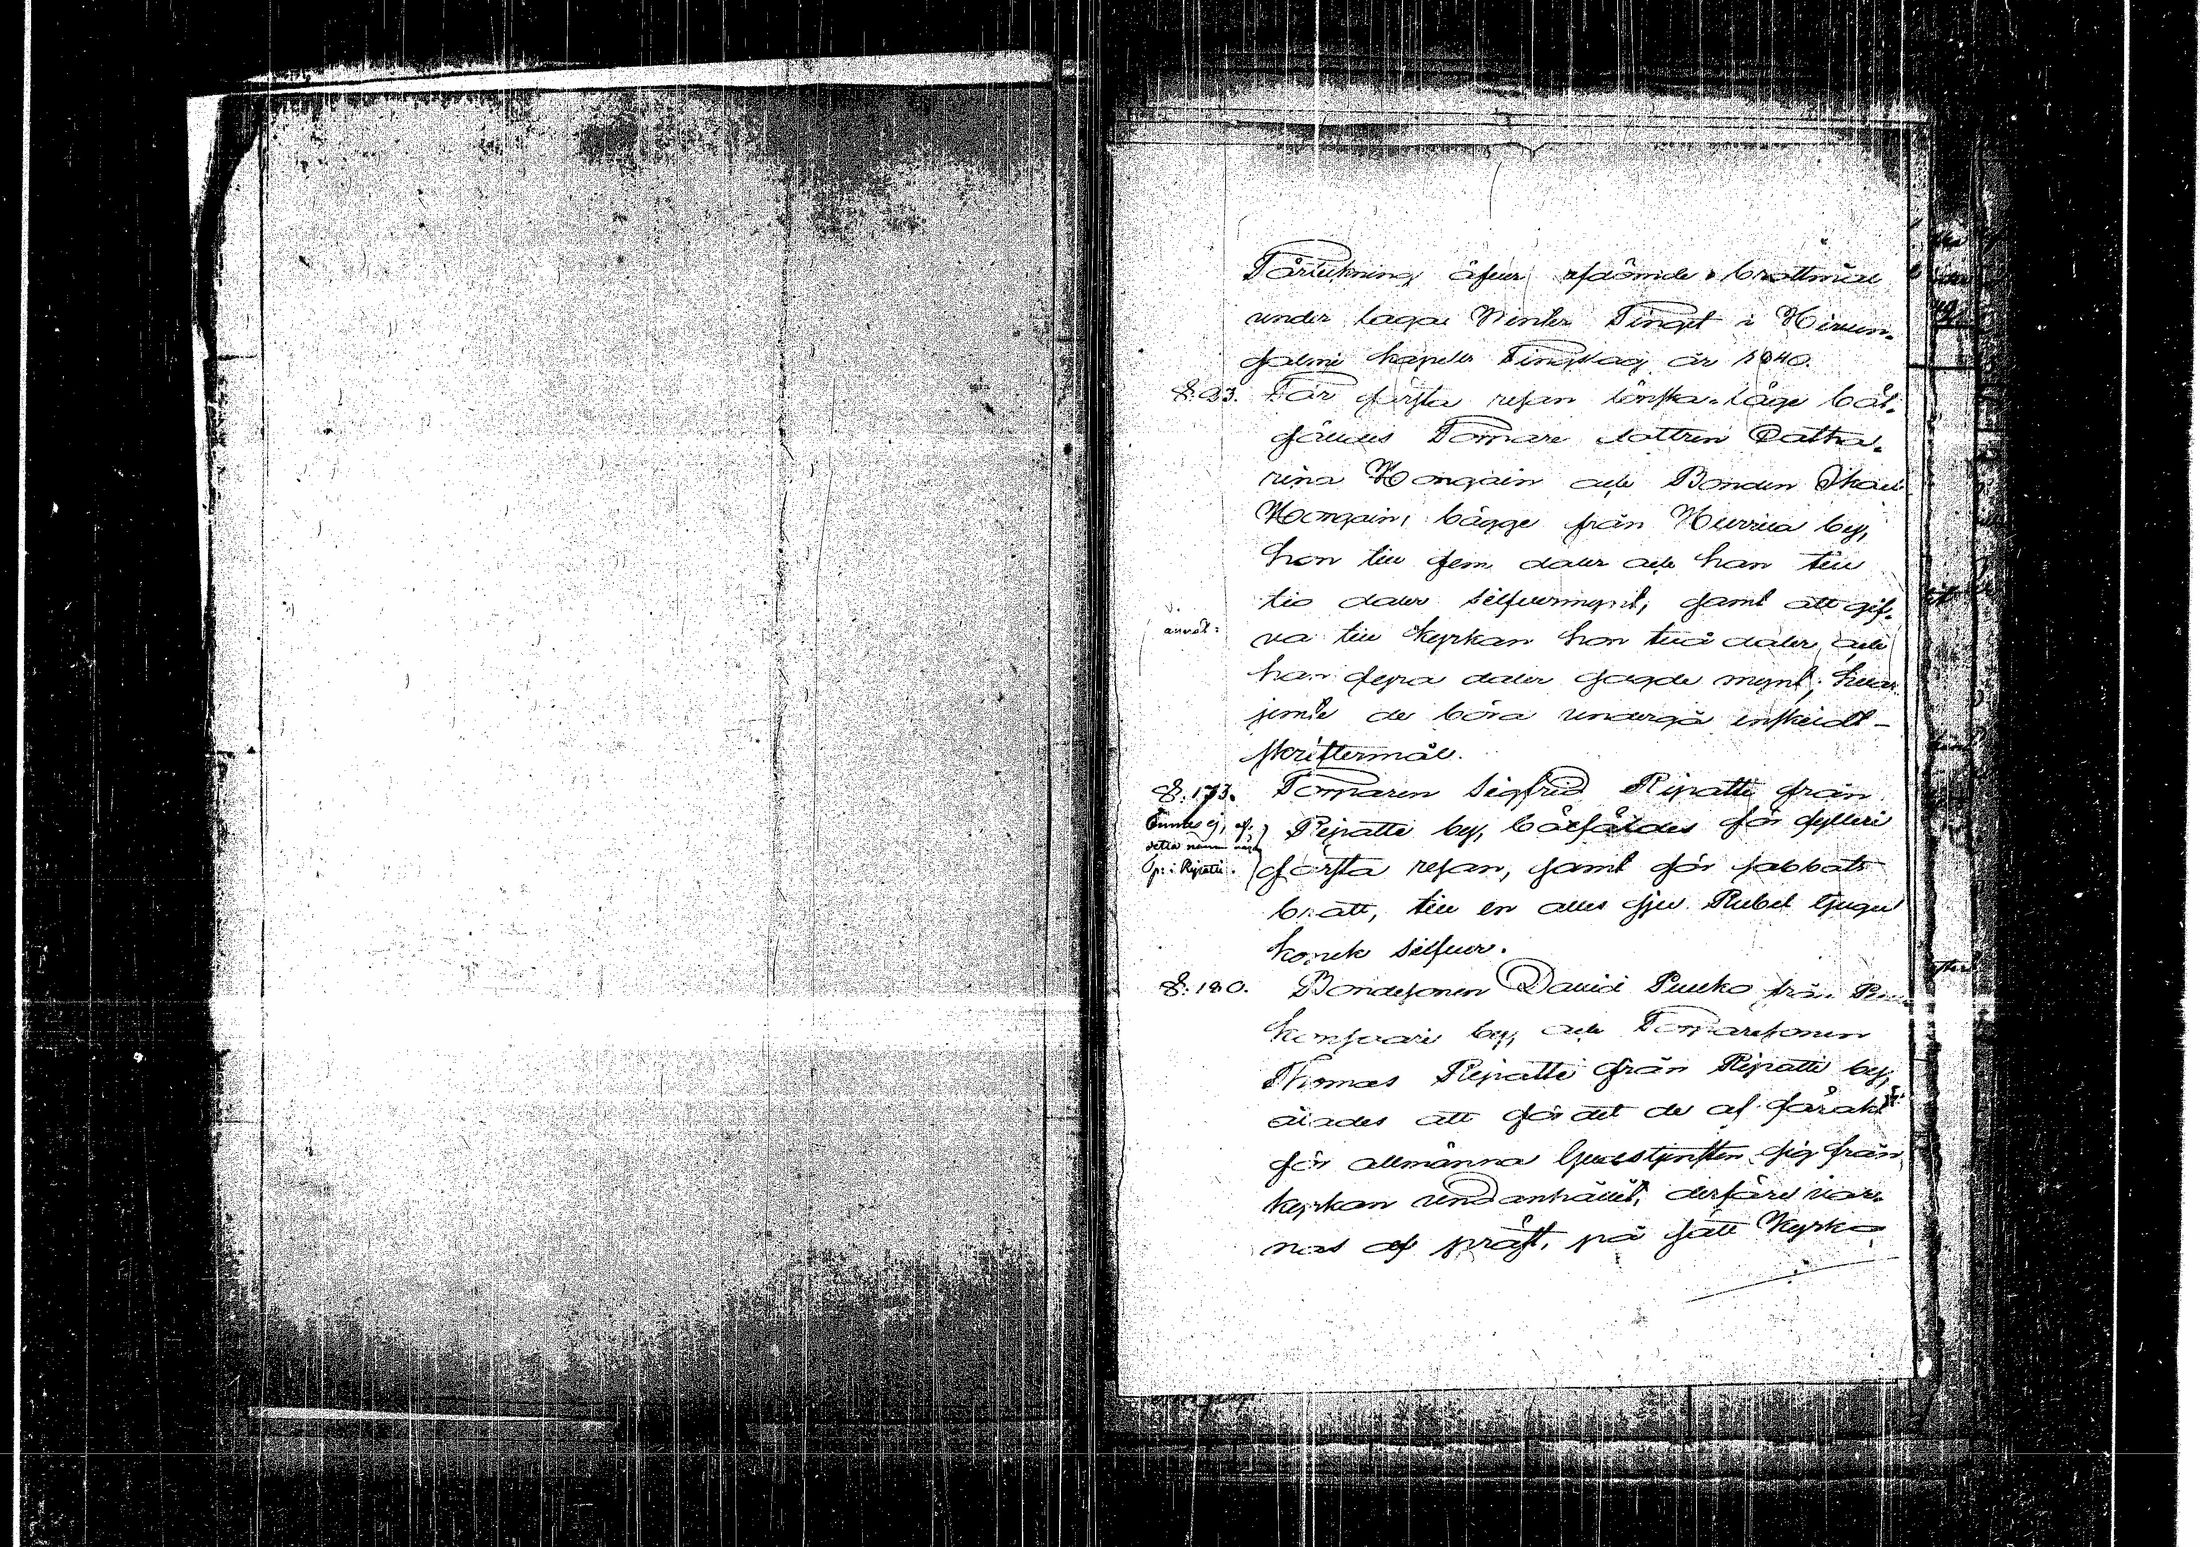 Förteckning öfver afdömde brottmål
under laga Winter Tinget i Hirven-
salmi kapels Tingslag år 1840.
§. 23. För första resan lönska-läge böt-
fäldes Torpare dottren Catha-
rina Hongain och Bonden Michael
Hongain, bägge från Hurrila by,
hon till fem daler och han till
tio daler silfvermynt, samt att gif-
va till kyrkan hon två daler, och
han fyra daler sagde mynt, hvar-
jemte de böra undergå enskildt
skriftermål.
§. 173. Torparen Sigfrid Ripatti från
Ripatti by, bötfäldes för fylleri
första resan, samt för sabbats
brott, till en alles sju Rubel tjugu
kopek silfver.
finnes ej, af
detta namn
§. 180. Bondesonen David Pulko från
by, och Torparesonen
Thomas Ripatti från Ripatti by,
ålades att för det de af förakt
för allmänna Gudstjensten sig från
kyrkan undanhållit, derföre var-
nas af präst, på sätt Kyrko